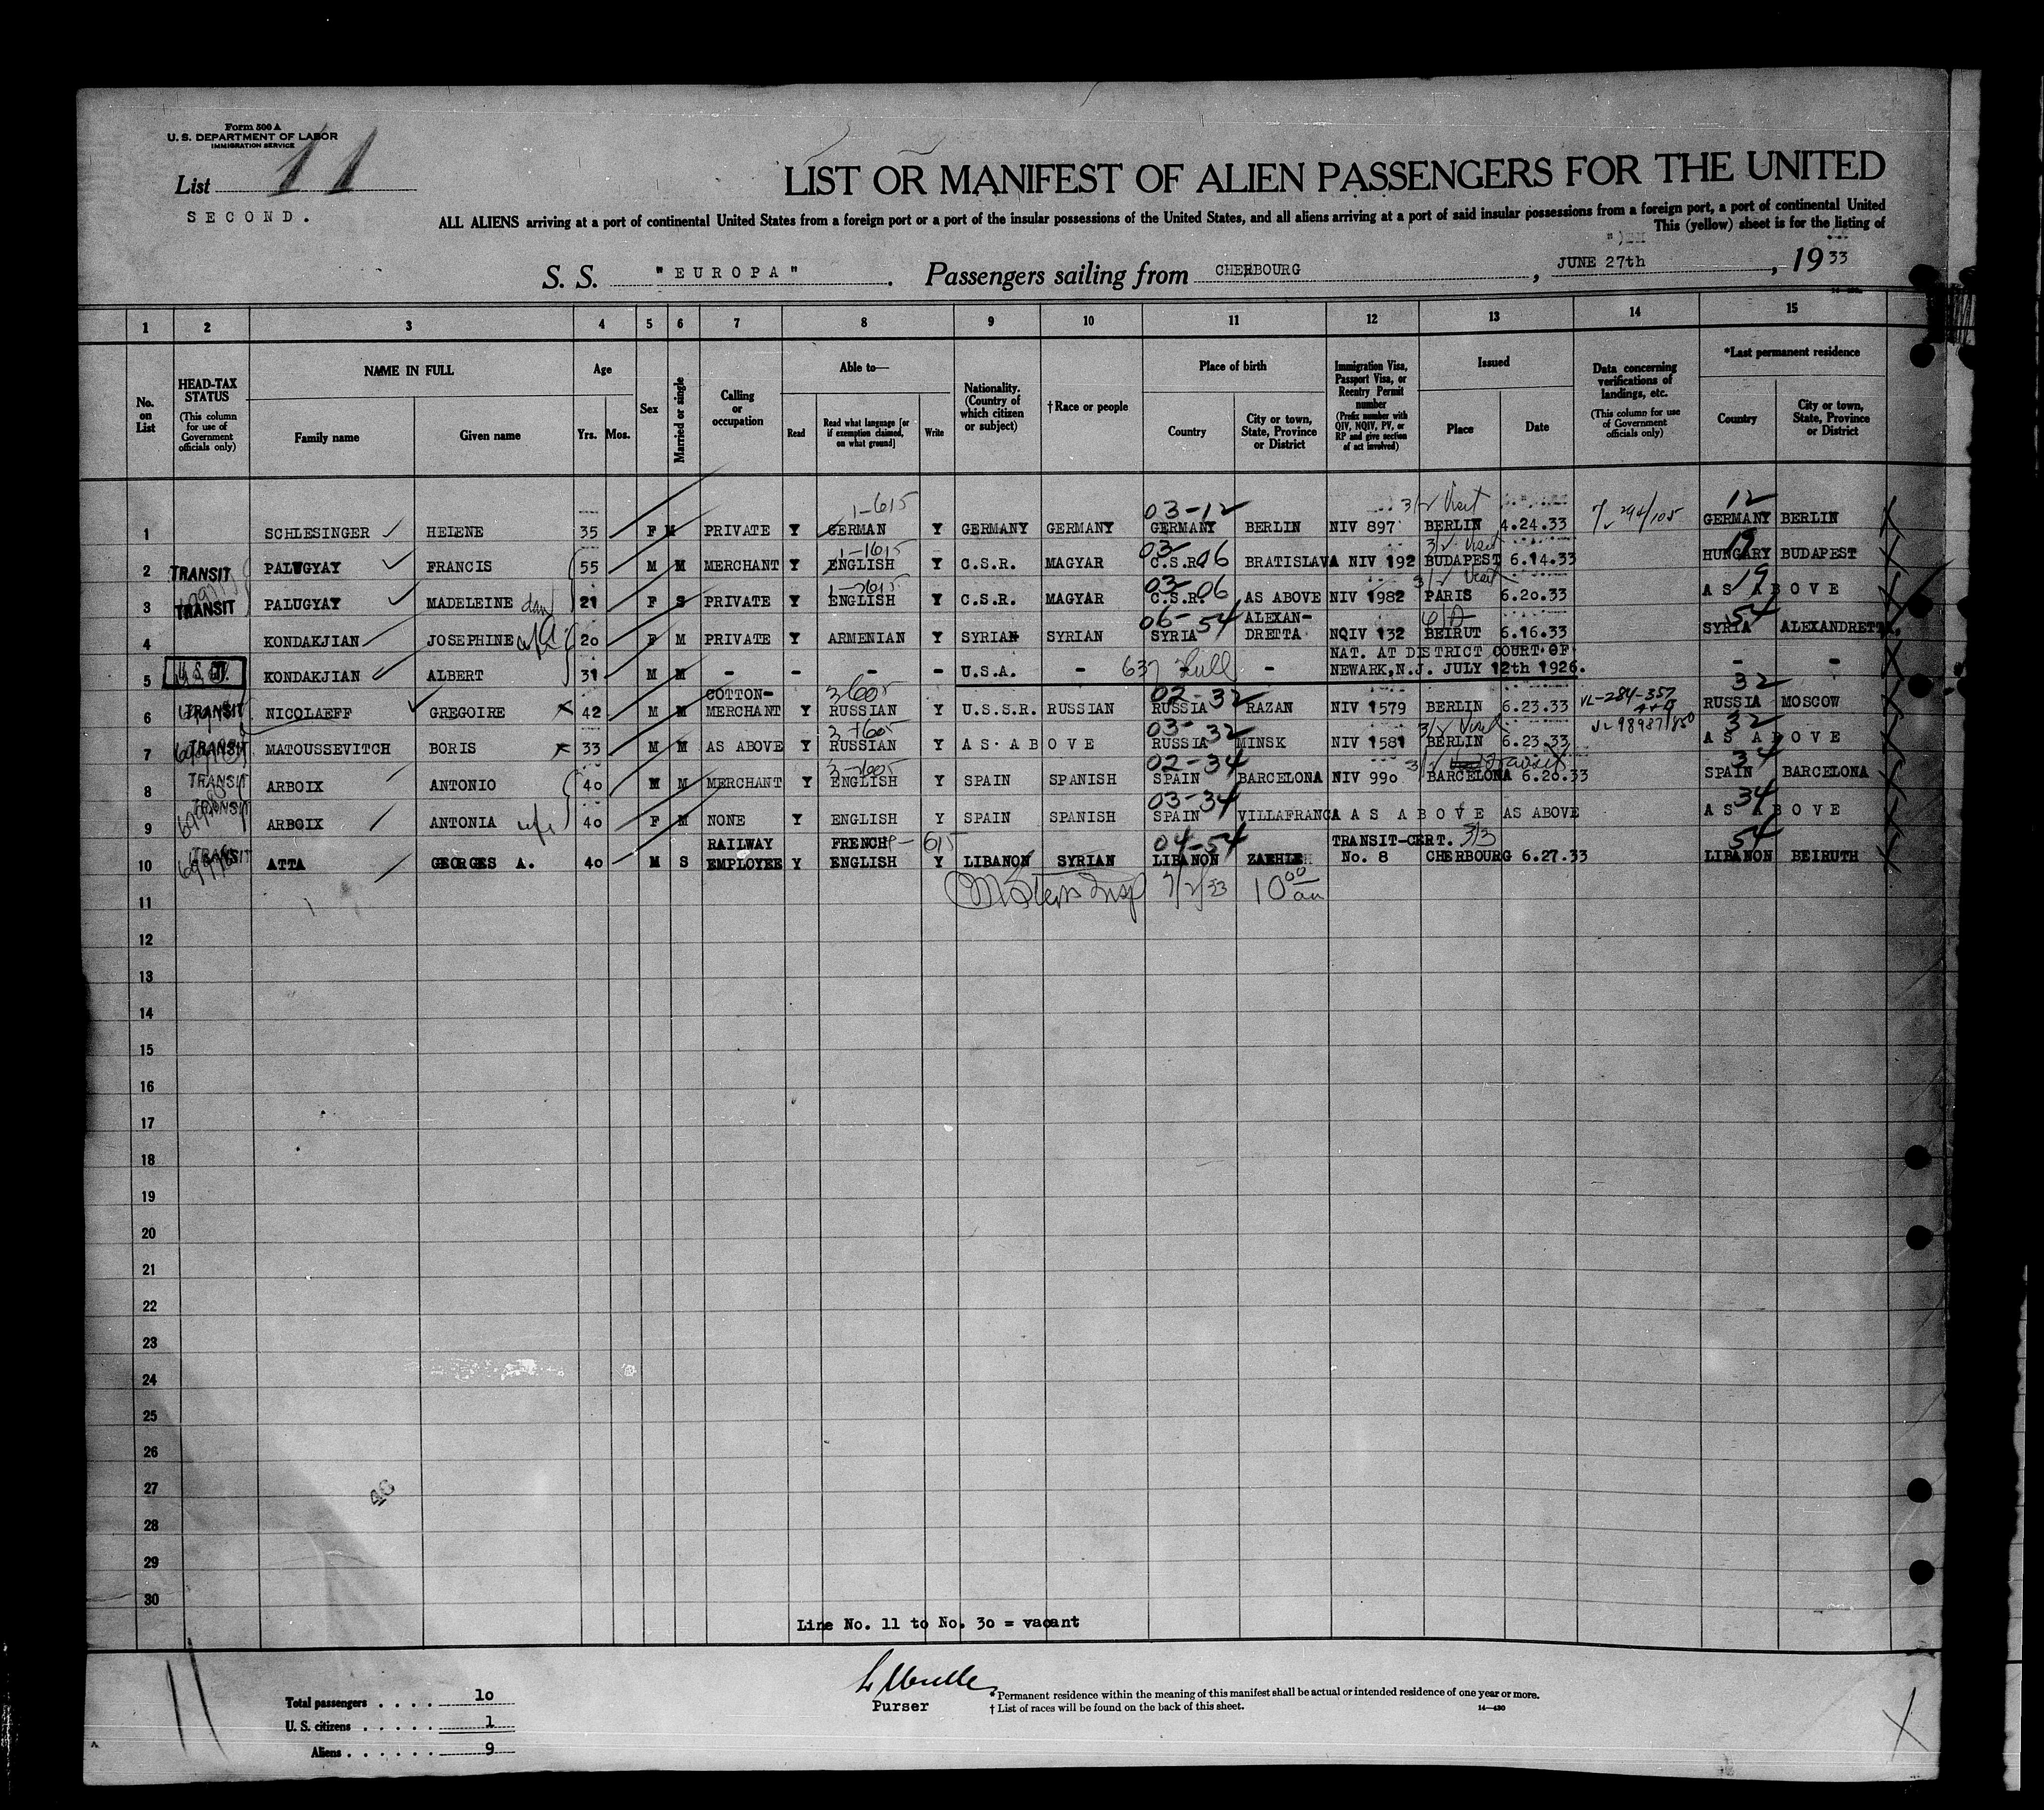 Form 500 A
U. S. DEPARTMENT OF LABOR
IMMIGRATION SERVICE
List 11
SECOND.
LIST OR MANIFEST OF ALIEN PASSENGERS FOR THE UNITED
ALL ALIENS arriving at a port of continental United States from a foreign port or a port of the insular possessions of the United States, and all aliens arriving at a port of said insular possessions from a foreign port, a port of continental United
This (yellow) sheet is for the listing of
S. S. "EUROPA". Passengers sailing from CHERBOURG, JUNE 27th, 1933
1 2 3 4 5 6 7 8 9 10 11 12 13 14 15
No. on List
HEAD-TAX STATUS (This column for use of Government officials only)
NAME IN FULL Family name Given name
Age Yrs. Mos.
Sex
Married or single
Calling or occupation
Able to— Read Read what language [or if exemption claimed, on what ground] Write
Nationality. (Country of which citizen or subject)
†Race or people
Place of birth Country City or town, State, Province or District
Immigration Visa, Passport Visa, or Reentry Permit number (Prefix number with QIV, NQIV, PV, or RP and give section of act involved)
Issued Place Date
Data concerning verifications of landings, etc. (This column for use of Government officials only)
*Last permanent residence Country City or town, State, Province or District
1-615 03-12 3/2 Visit 12
1 SCHLESINGER HELENE 35 F M PRIVATE Y GERMAN Y GERMANY GERMANY GERMANY BERLIN NIV 897 BERLIN 4.24.33 294/105 GERMANY BERLIN
1-1615 03-06 3/2 Visit 19
2 TRANSIT PALUGYAY FRANCIS 55 M M MERCHANT Y ENGLISH Y C.S.R. MAGYAR C.S.R. BRATISLAVA NIV 192 BUDAPEST 6.14.33 HUNGARY BUDAPEST
03-06 3/2 Visit 19
3 TRANSIT PALUGYAY MADELEINE dau 21 F S PRIVATE Y ENGLISH Y C.S.R. MAGYAR C.S.R. AS ABOVE NIV 1982 PARIS 6.20.33 AS ABOVE
06-54 54
4 KONDAKJIAN JOSEPHINE 20 F M PRIVATE Y ARMENIAN Y SYRIAN SYRIAN SYRIA ALEXAN-DRETTA NQIV 132 BEIRUT 6.16.33 SYRIA ALEXANDRETTA.
5 KONDAKJIAN ALBERT 31 M M - - - - U.S.A. - 637 - NAT. AT DISTRICT COURT OF NEWARK, N.J. JULY 12th 1926. - -
3-605 02-32 VL-284-357 32
6 TRANSIT NICOLAEFF GREGOIRE 42 M M COTTON-MERCHANT Y RUSSIAN Y U.S.S.R. RUSSIAN RUSSIA RAZAN NIV 1579 BERLIN 6.23.33 RUSSIA MOSCOW
03-32 3/2 Visit 32
7 TRANSIT MATOUSSEVITCH BORIS 33 M M AS ABOVE Y RUSSIAN Y AS ABOVE RUSSIA MINSK NIV 1581 BERLIN 6.23.33 AS ABOVE
02-34 3/2 Transit 34
8 TRANSIT ARBOIX ANTONIO 40 M M MERCHANT Y ENGLISH Y SPAIN SPANISH SPAIN BARCELONA NIV 990 BARCELONA 6.20.33 SPAIN BARCELONA
03-34 34
9 TRANSIT ARBOIX ANTONIA wife 40 F M NONE Y ENGLISH Y SPAIN SPANISH SPAIN VILLAFRANCA AS ABOVE AS ABOVE AS ABOVE
615 04-54 3/3 54
10 TRANSIT ATTA GEORGES A. 40 M S RAILWAY EMPLOYEE Y FRENCH ENGLISH Y LIBANON SYRIAN LIBANON ZAEHLE TRANSIT-CERT. No. 8 CHERBOURG 6.27.33 LIBANON BEIRUTH
11 7/2/33 10 00 am
12
13
14
15
16
17
18
19
20
21
22
23
24
25
26
27
28
29
30
Line No. 11 to No. 30 = vacant
Purser
Total passengers .... 10
U. S. citizens ..... 1
Aliens ...... 9
*Permanent residence within the meaning of this manifest shall be actual or intended residence of one year or more.
†List of races will be found on the back of this sheet.
14-430